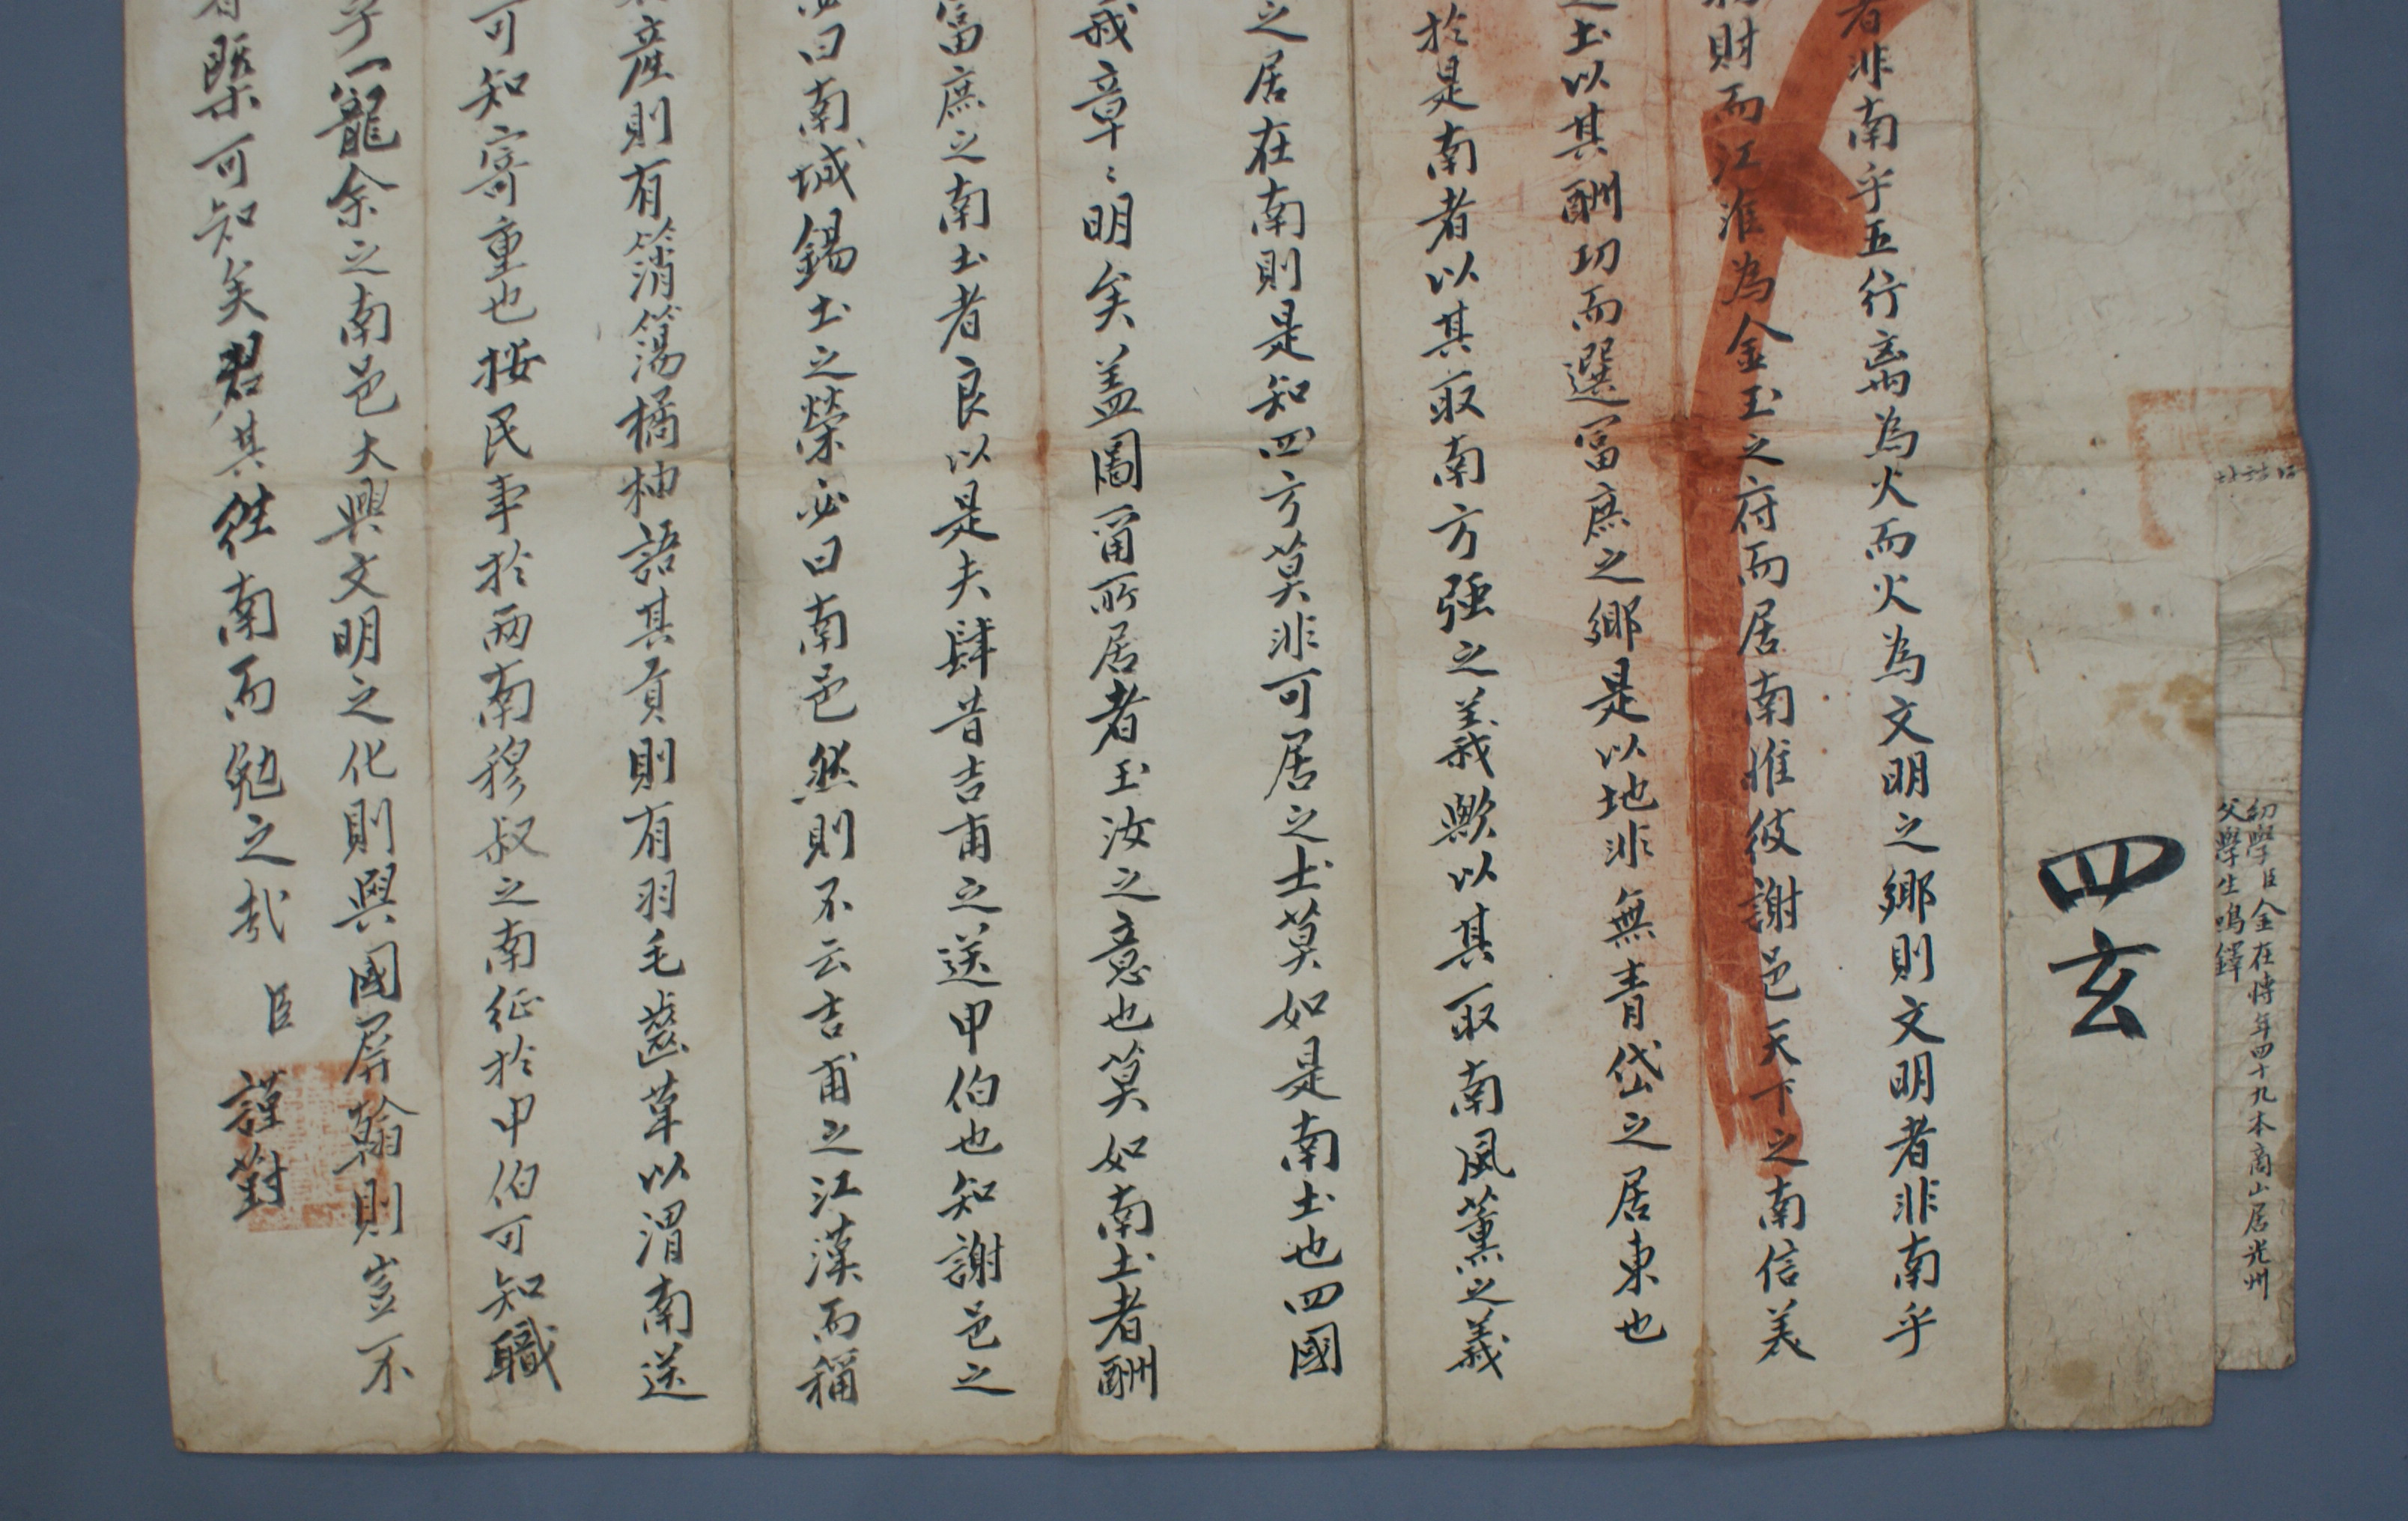 幼學臣金在愽年四十九本商山居光州
父學生鳴鐸
四玄
者非南乎五行离為火而火為文明之鄉則文明者非南乎
財而江淮為金玉之府而居南惟彼謝邑天下之南信美
之土以其酬功而選富庶之鄉是以地非無青岱之居東也
於是南者以其取南方强之義歟以其取南風薰之義
之居在南則是知四方莫非可居之土莫如是南土也四國
哉章〻明矣盖圖甾所居者王汝之意也莫如南土者酬
富庶之南土者良以是夫肆昔吉甫之送申伯也知謝邑之
必曰南城錫土之榮必曰南邑然則不云吉甫之江漢而稱
産則有篠簜橘柚語其貢則有羽毛齒革以渭南送
可知寄重也按民事於兩南穆叔之南征於申伯可知職
予一寵余之南邑大興文明之化則與國屏翰則豈不
槩可知矣君其徃南而勉之哉 臣謹對